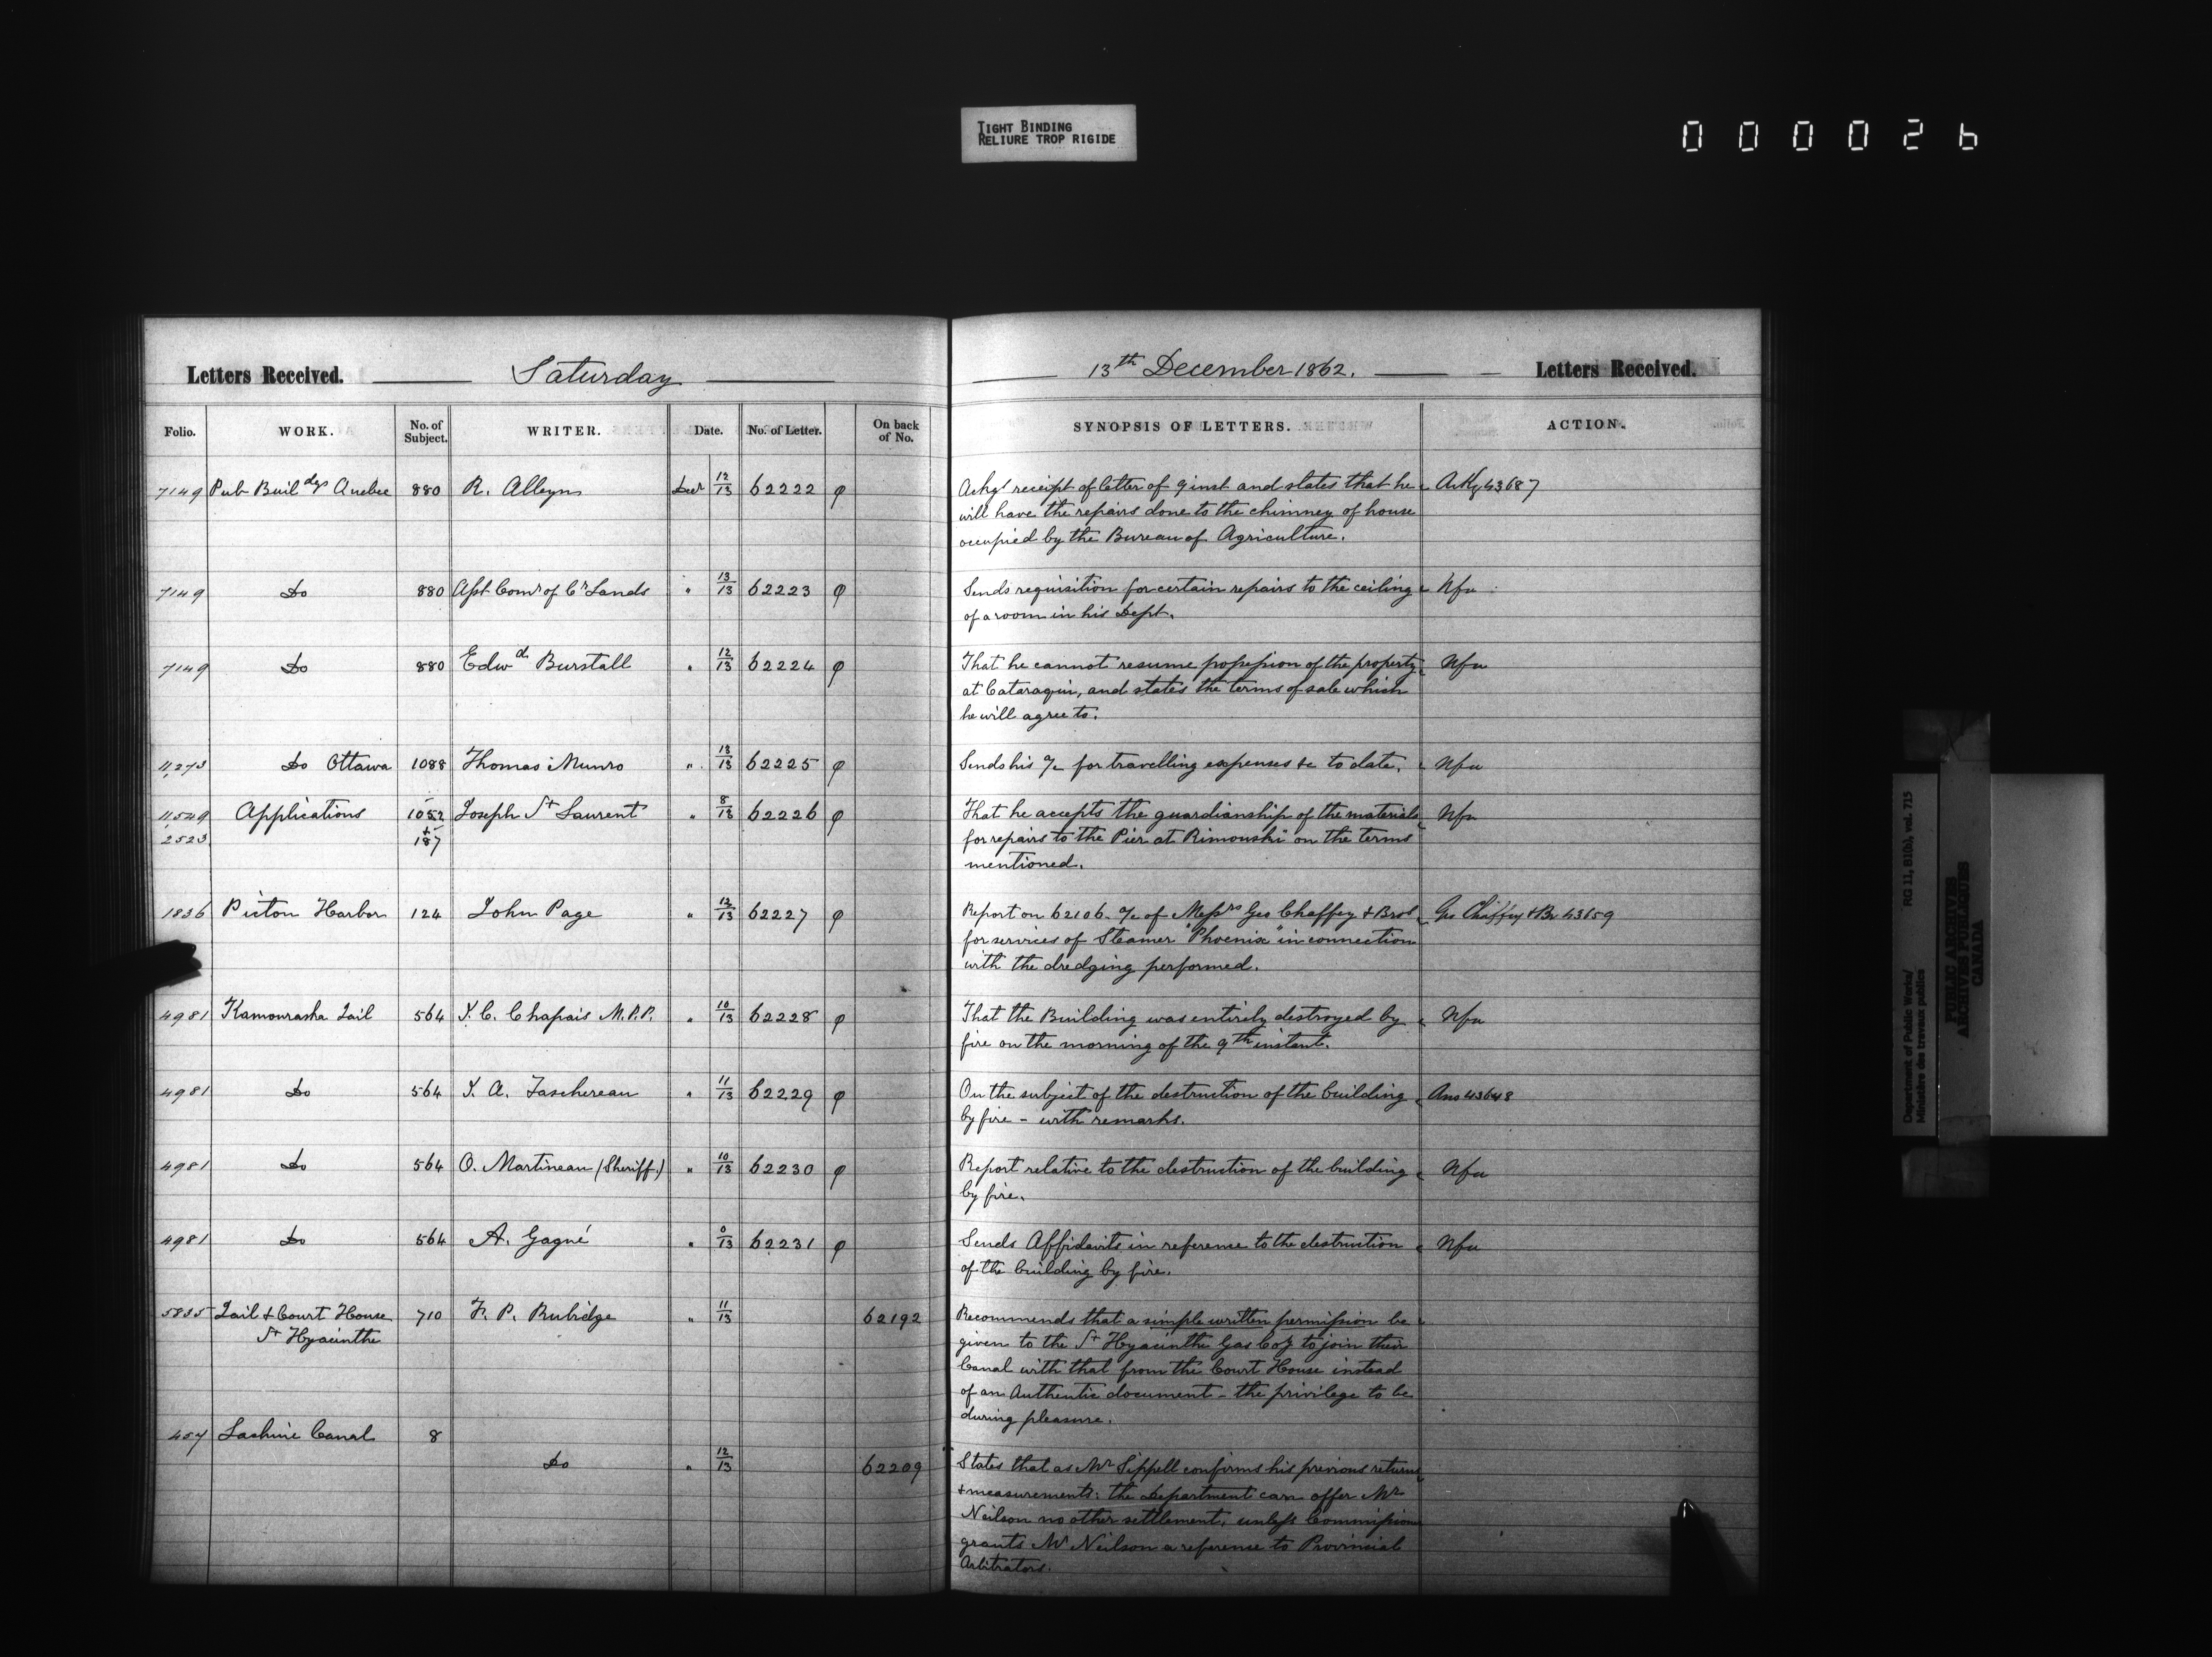 TIGHT BINDING
RELIURE TROP RIGIDE
000026
Letters Received. Saturday
13th December 1862. Letters Received.
Folio. WORK. No. of Subject. WRITER. Date. No. of Letter. On back of No.
SYNOPSIS OF LETTERS. ACTION.
7149 Pub Build^gs Quebec 880 R. Alleyn Decr 12/13 62222 φ
Ackgs receipt of letter of 9 inst and states that he Ackg 43687
will have the repairs done to the chimney of house
occupied by the Bureau of Agriculture.
7149 Do 880 Asst Comr of Cn Lands " 13/13 62223 φ
Sends requisition for certain repairs to the ceiling Nfa
of a room in his Dept.
7149 Do 880 Edwd Burstall " 12/13 62224 φ
That he cannot resume possession of the property Nfa
at Cataraqui, and states the terms of sale which
he will agree to.
11,273 Do Ottawa 1088 Thomas Munro " 13/13 62225 φ
Sends his a/c for travelling expenses &c to date. Nfa
11,549 Applications 1052 Joseph St Laurent " 8/13 62226 φ
2523 + 187
That he accepts the guardianship of the materials Nfa
for repairs to the Pier at Rimouski on the terms
mentioned.
1836 Picton Harbor 124 John Page " 12/13 62227 φ
Report on 62106. a/c of Messrs Geo Chaffey & Bros Geo Chaffey & Br 43659
for services of Steamer "Phoenix" in connection
with the dredging performed.
4981 Kamouraska Jail 564 J. C. Chapais M.P.P. " 10/13 62228 φ
That the Building was entirely destroyed by Nfa
fire on the morning of the 9th instant.
4981 Do 564 J. A. Taschereau " 11/13 62229 φ
On the subject of the destruction of the building Ans 43648
by fire - with remarks.
4981 Do 564 O. Martineau (Sheriff.) " 10/13 62230 φ
Report relative to the destruction of the building Nfa
by fire.
4981 Do 564 A. Gagné " 0/13 62231 φ
Sends Affidavits in reference to the destruction Nfa
of the building by fire.
5835 Jail & Court House 710 F. P. Rubidge " 11/13 62192
St Hyacinthe
Recommends that a simple written permission be
given to the St Hyacinthe Gas Coy to join their
Canal with that from the Court House instead
of an Authentic document - the privilege to be
during pleasure.
457 Lachine Canal 8
Do " 12/13 62209
States that as Mr Sippell confirms his previous returns
& measurements: the Department can offer Mr
Neilson no other settlement, unless Commission
grants Mr Neilson a reference to Provincial
Arbitrators.
Department of Public Works/ RG 11, B1(b), vol. 715
Ministère des travaux publics
PUBLIC ARCHIVES
ARCHIVES PUBLIQUES
CANADA